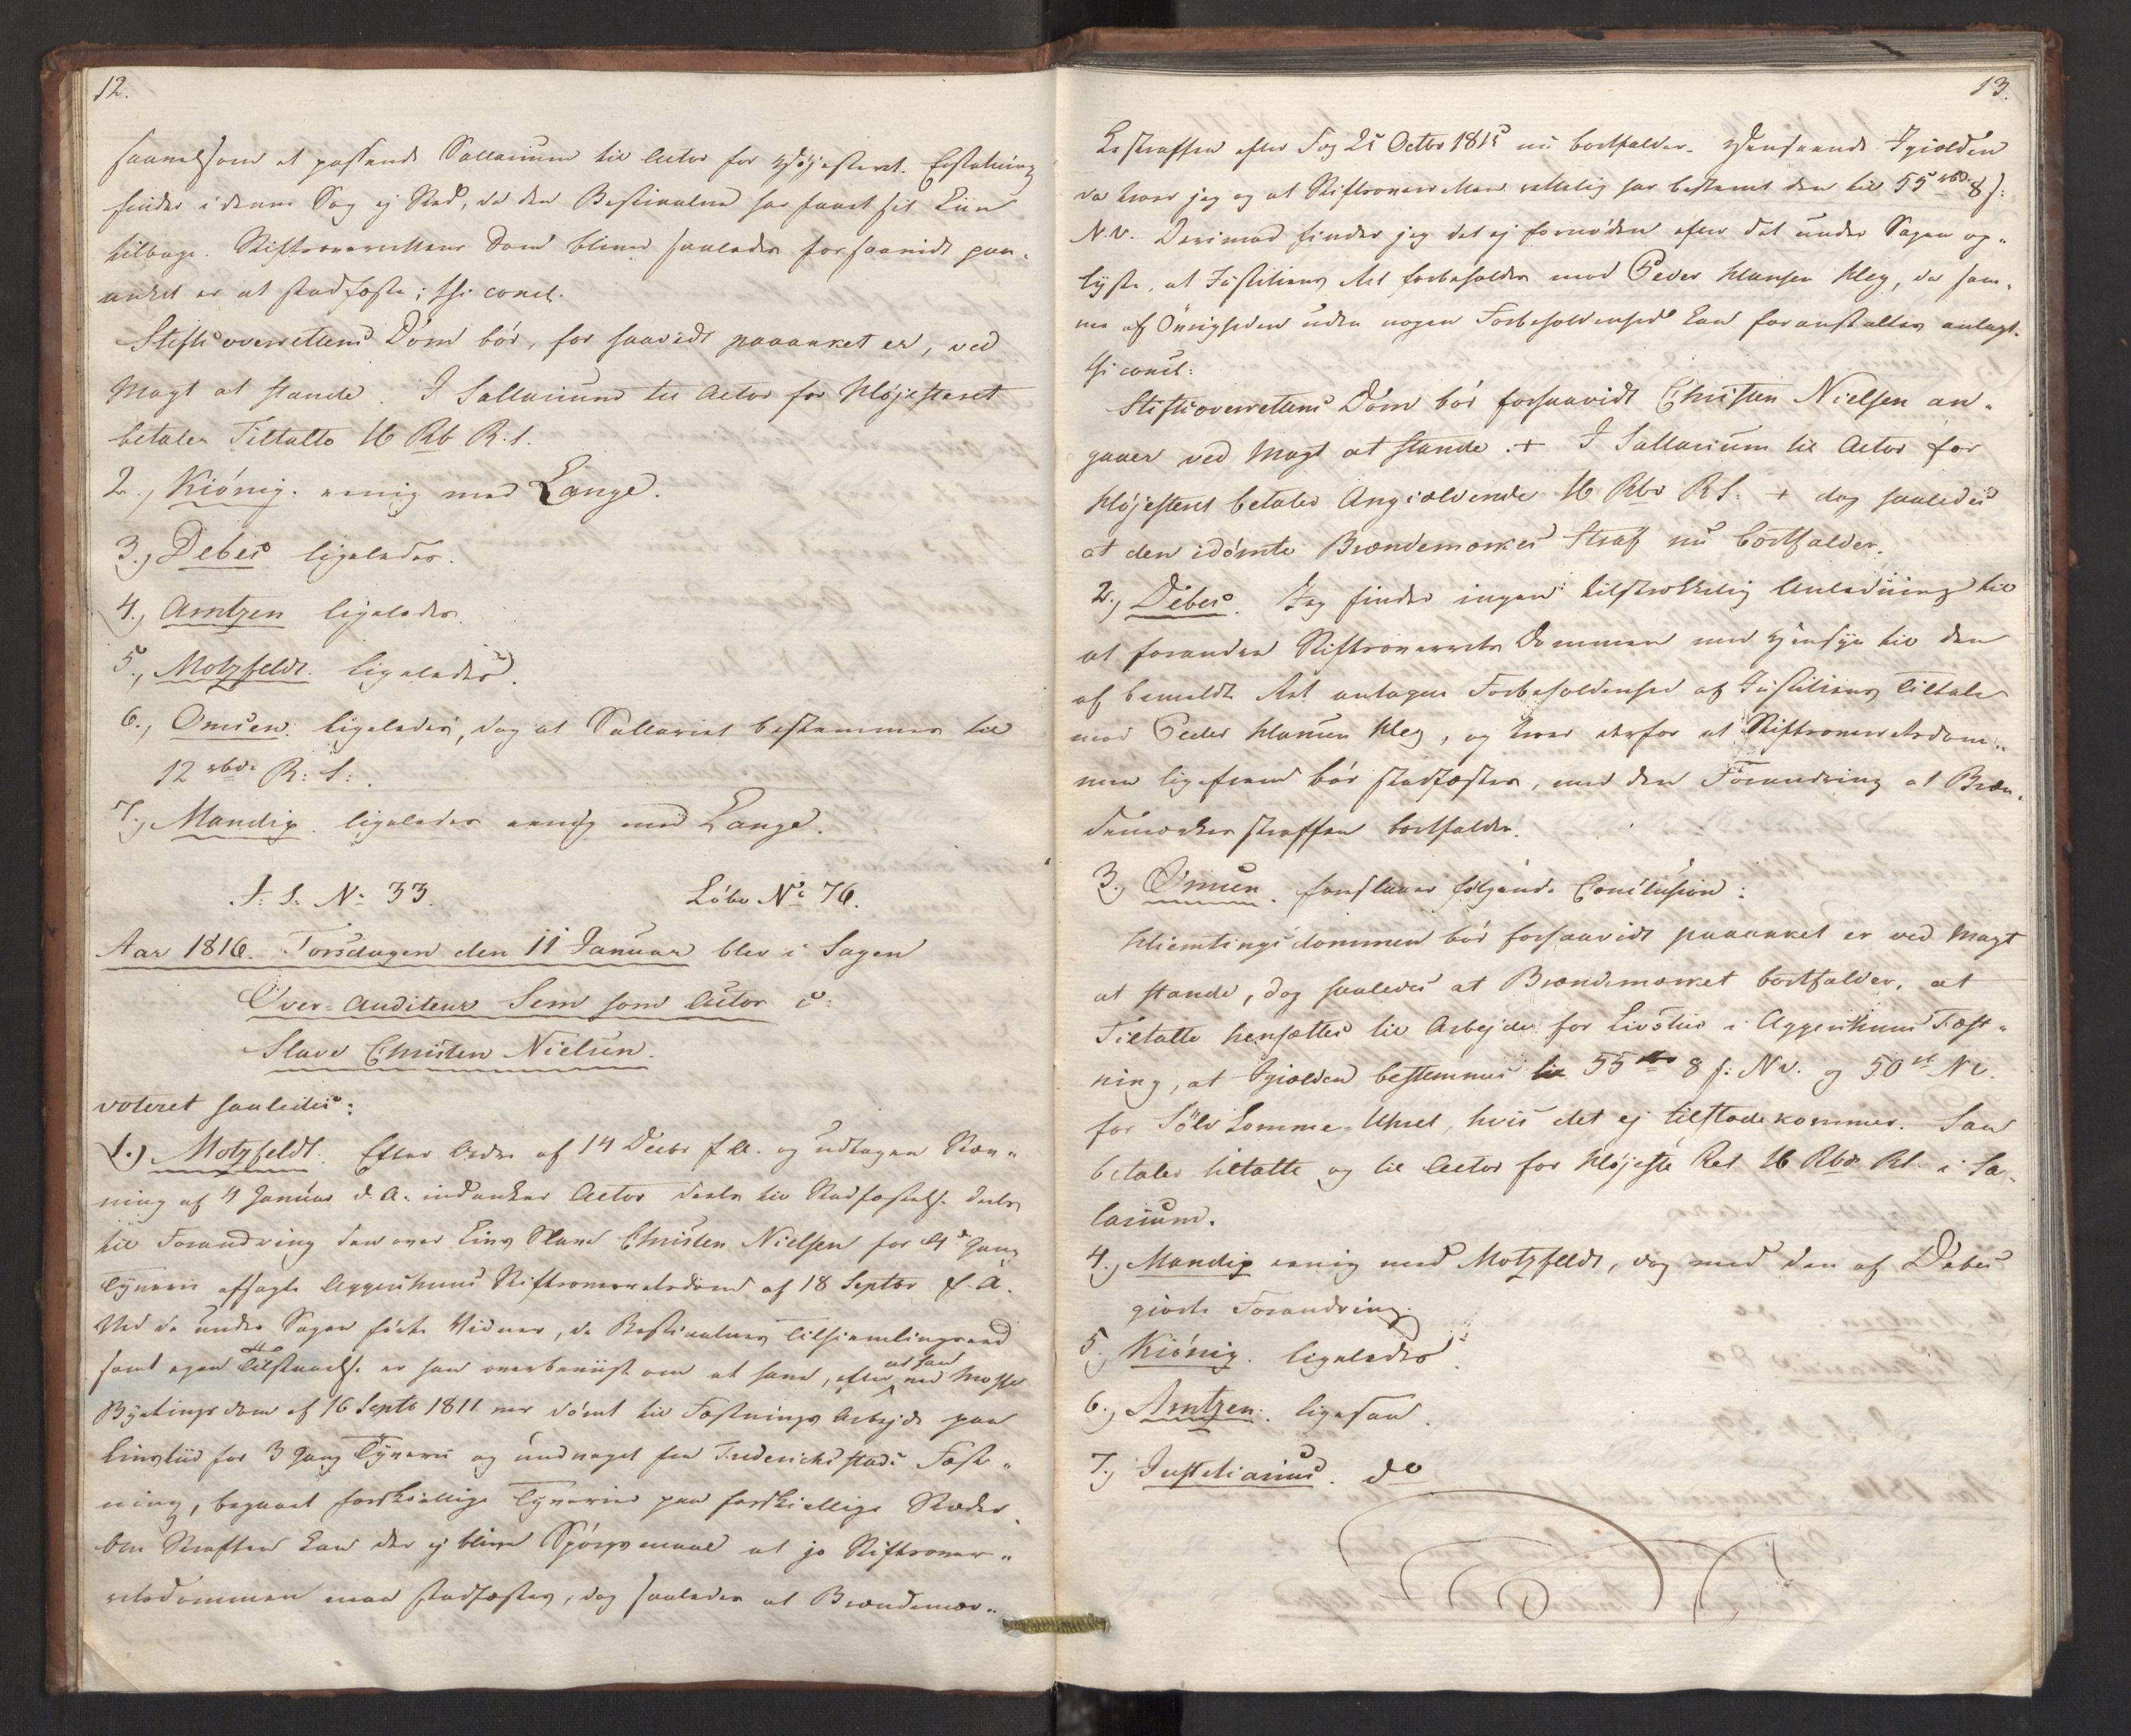 12.
saavelsom et passende Sallarium til Actor for Høiesteret. Erstatning
finder i denne Sag ej Sted, da den Bestiaalne har faaet sit Liin
tilbage. Stiftsoverrettens Dom bliver saaledes forsaavidt paa-
anket er at stadfæste; thi concl.
Stiftsoverrettens Dom bör, for saavidt paaanket er, ved
Magt at stande. I Sallarium til Actor for Høiesteret
betaler Tiltalte 16 Rb R. S.
2., Kiönig. eenig med Lange.
3., Debes ligeledes.
4., Arntzen ligeledes.
5., Motzfeldt. ligeledes.
6., Omsen. ligeledes, dog at Sallariet bestemmes til
12 rbd. R: S:
7., Mandix. ligeledes eenig med Lange.
J: S. No 33. Löbe No 76.
Aar 1816. Torsdagen den 11 Januar blev i Sagen
Over-Auditeur Sem som Actor c:
Slave Christen Nielsen.
voteret saaledes:
1.) Motzfeldt. Efter Ordre af 14 Decbr f. A. og udtagen Stæv-
ning af 4 Januar d. A. indanker Actor deels til Stadfæstelse deels
til Forandring den over Livs Slave Christen Nielsen for 4de Gang
Tyverie afsagte Aggershuus Stiftsoverretsdom af 18 Septbr f. A.
Ved de under Sagen førte Vidner, de Bestiaalnes Tilhiemlingseed
samt egen Tilstaaelse er han overbeviist om at have, efter at han ved Mosse
Byetings dom af 16 Septbr 1811 var dömt til Fæstnings Arbejde paa
Livstiid for 3 Gang Tyverie og undveget fra Frederichsstads Fæst-
ning, begaaet forskiellige Tyverier paa forskiellige Stæder.
Om Straffen kan der ej blive Spörgsmaal at jo Stiftsover-
retsdommen maa stadfæstes, dog saaledes at Brændemær-
13.
kestraffen efter Fog 25 Octbr 1815 nu bortfalder. Henseende Igiælden
da troer jeg og at Stiftsoverretten rettelig har bestemt den til 55 rbd 8 s:
N. V. Derimod finder jeg det ej fornøden efter det under Sagen op-
lyste, at Justitiens Ret forbeholdes mod Peder Hansen Kleg, da sam-
me af Övrigheden uden nogen Forbeholdenhed kan foranstaltes anlagt.
Thi concl:
Stiftsoverrettens Dom bör forsaavidt Christen Nielsen an-
gaaer ved Magt at stande. + I Sallarium til Actor for
Høiesteret betaler Angiældende 16 Rbd R S. + dog saaledes
at den idömte Brændemærkes Straf nu bortfalder.
2., Debes. Jeg finder ingen tilstrækkelig Anledning til
at forandre Stiftsoverrets Dommen med Hensyn til den
af bemeldte Ret antagne Forbeholdenhed af Justitiens Tiltale
mod Peder Hansen Kleg, og troer derfor at Stiftsoverretsdom-
men ligefrem bör stadfæstes, med den Forandring at Bræn-
demærkes straffen bortfalder.
3., Omsen. foreslaaer følgende Conclusion:
Hiemtingsdommen bör forsaavidt paaanket er ved Magt
at stande, dog saaledes at Brændemærket bortfalder, at
Tiltalte hensættes til Arbejde for Livstiid i Aggershuus Fæst-
ning, at Igiælden bestemmes til 55 rbd 8 s: N V. og 50 rd N V.
for Sölv Lomme-Uhret, hvis det ej tilstædekommer. Saa
betaler tiltalte og til Actor for Høieste Ret 16 Rbd RS. i Sa-
larium.
4., Mandix eenig med Motzfeldt, dog med den af Debes
giorte Forandring.
5., Kiönig. ligeledes.
6., Arntzen. ligesaa.
7., Justitiarius. do